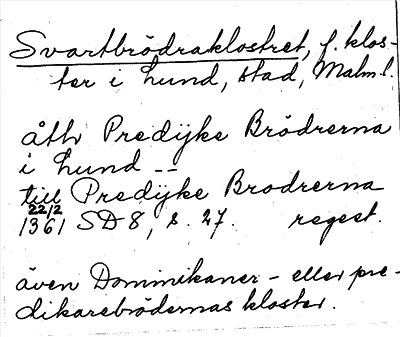 Svartbrödraklostret, f. klos-
ter i Lund, stad, Malm l.
åth Predijke Brödrerna
i Lund --
till Predijke Brodrerna
22/2
1361 SD 8, s. 27. regest.
även Dominikaner- eller pre-
dikarebrödernas kloster.